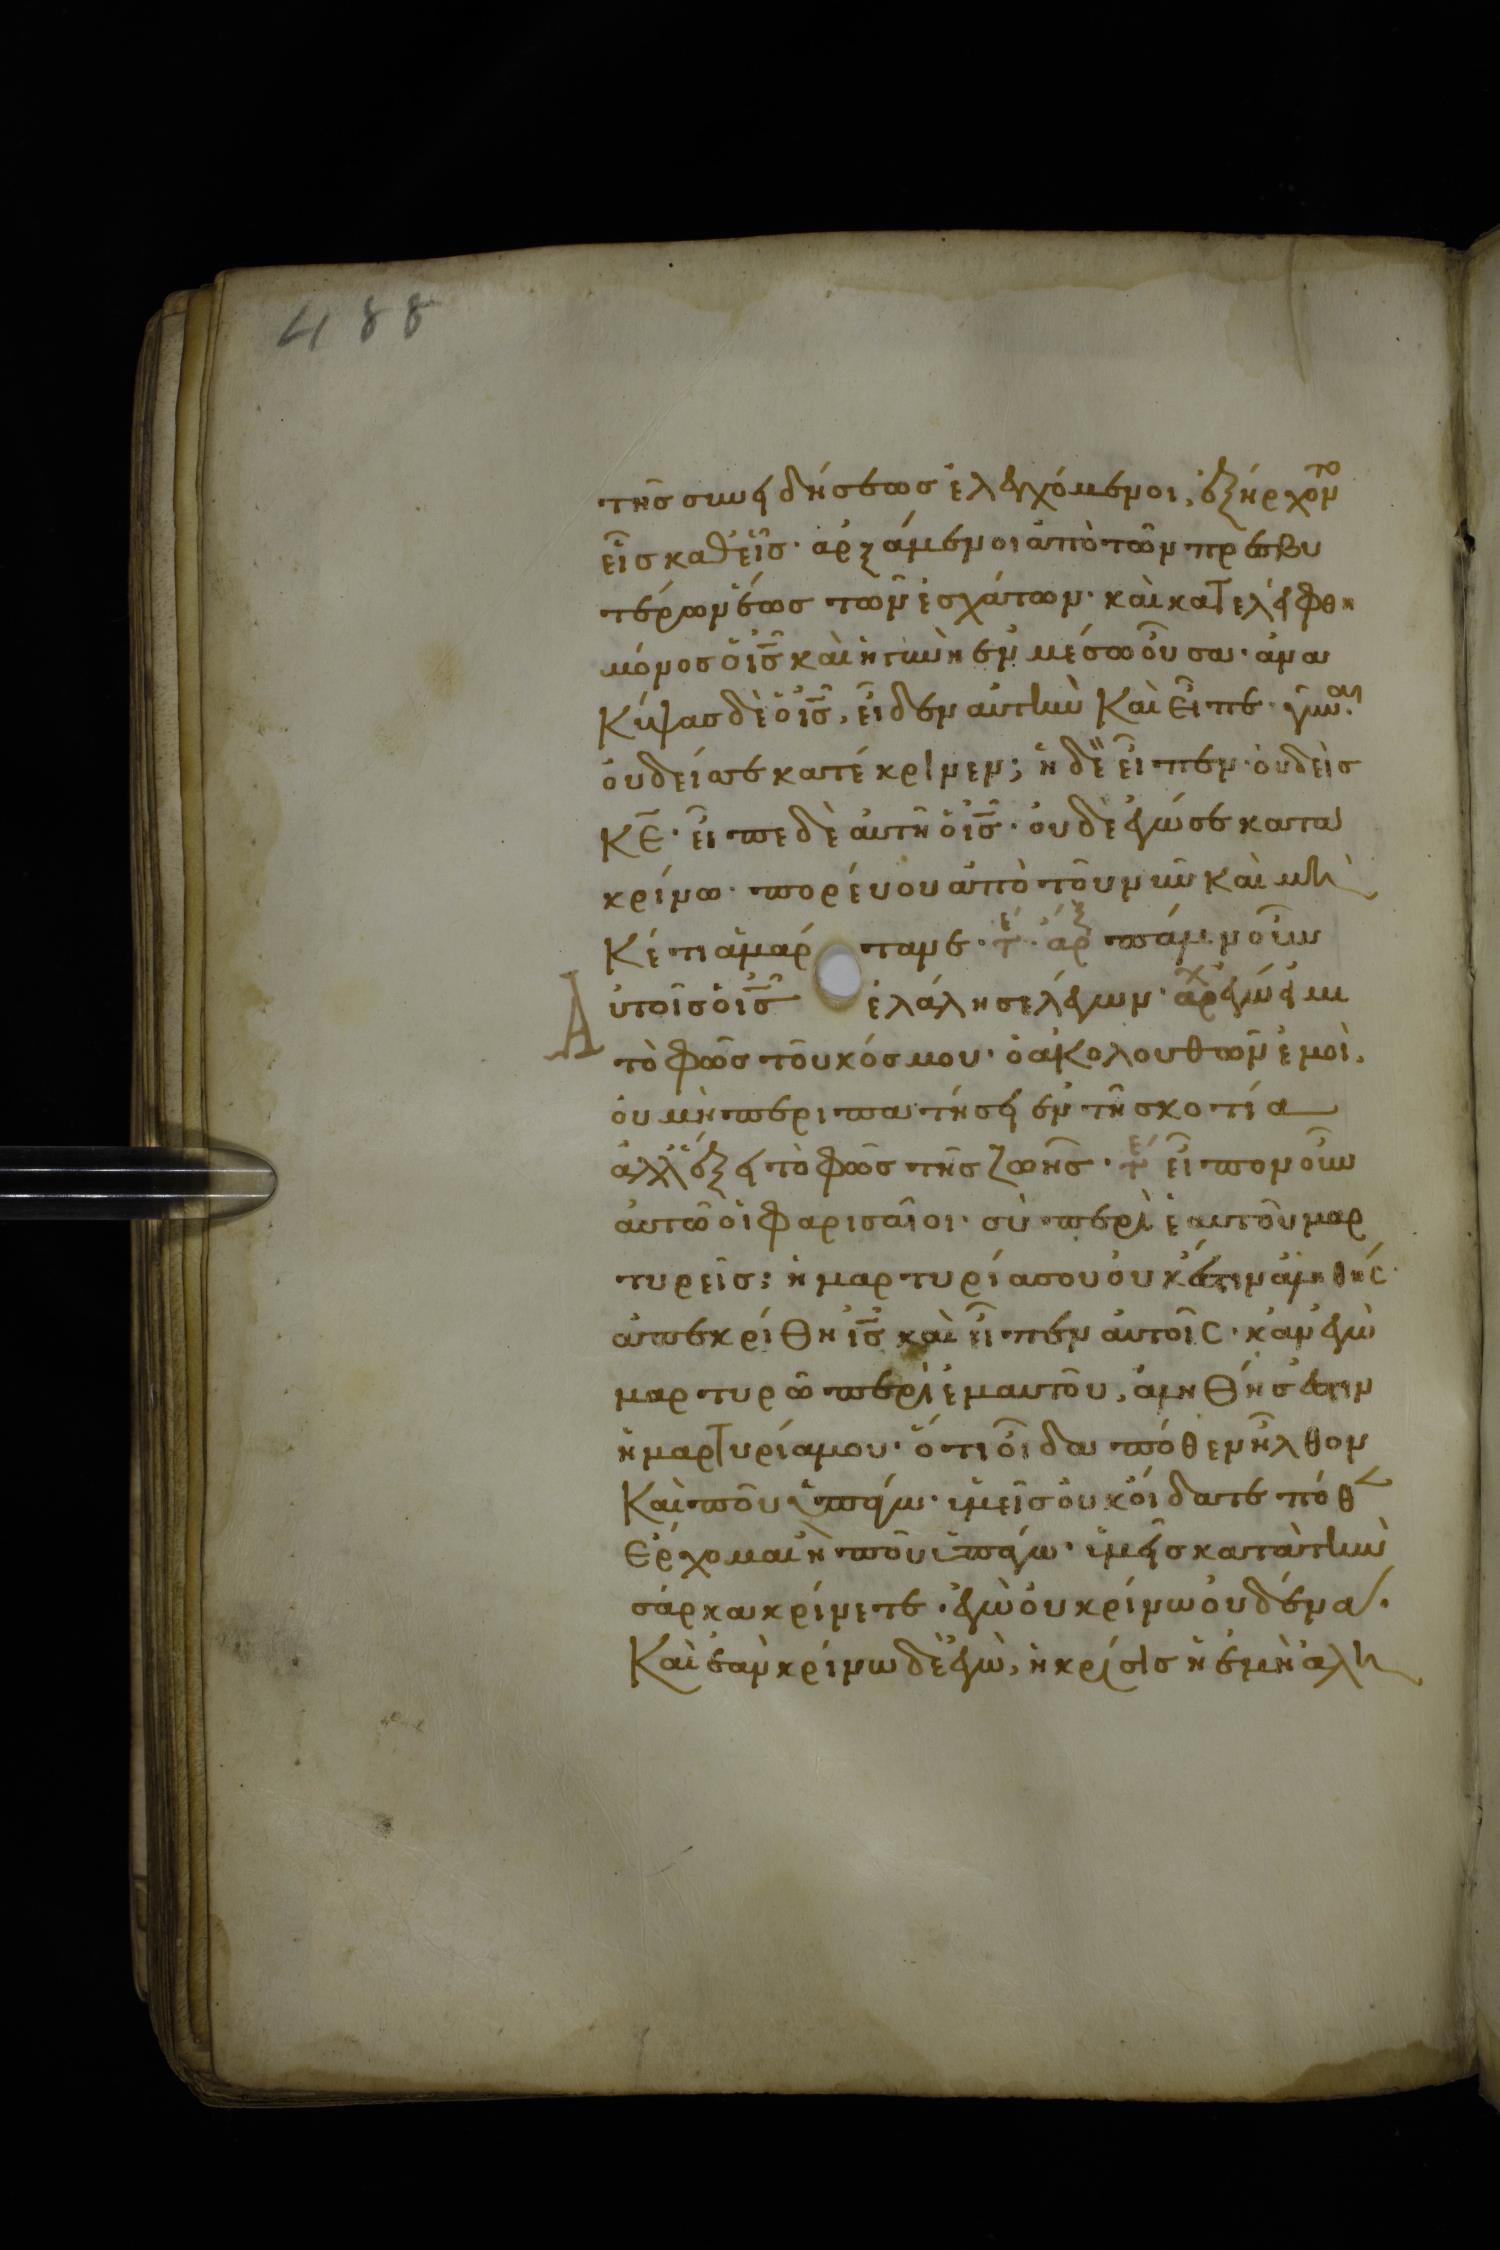 488
τῆς συνειδήσεως ἐλεγχόμενοι, ἐξήρχοντο
εἷς καθ εἷς· ἀρξάμενοι ἀπὸ τῶν πρεσβυ
τέρων ἕως τῶν ἐσχάτων· καὶ κατελείφθη
μόνος ὁ ις καὶ ἡ γυνὴ ἐν μέσω οὖσα· ἀνα
κύψας δὲ ὁ ις, εἶδεν αὐτὴν καὶ εἶπε· γύναι·
οὐδείς σε κατέκρινεν; ἡ δὲ εἶπεν· οὐδεὶς
κε· εἶπε δὲ αὐτῆ ὁ ις· οὐδὲ ἐγώ σε κατα
κρίνω· πορεύου ἀπὸ τοῦ νῦν καὶ μη
κέτι ἁμάρτανε· τε· ἀρξ πάλιν οὖν
αὐτοῖς ὁ ις ἐλάλησε λέγων· ἀρχ ἐγώ εἰμι
τὸ φῶς τοῦ κόσμου· ὁ ἀκολουθῶν ἐμοὶ,
οὐ μὴ περιπατήσει ἐν τῆ σκοτία
ἀλλ ἕξει τὸ φῶς τῆς ζωῆς· τε εἶπον οὖν
αὐτῶ οἱ φαρισαῖοι· σὺ περὶ ἑαυτοῦ μαρ
τυρεῖς; ἡ μαρτυρία σου οὐκ ἔστιν ἀληθής·
ἀπεκρίθη ις καὶ εἶπεν αὐτοῖς· κἀν ἐγὼ
μαρτυρῶ περὶ ἐμαυτοῦ, ἀληθής ἐστιν
ἡ μαρτυρία μου· ὅτι οἶδα πόθεν ἦλθον
καὶ ποῦ ὑπάγω· ὑμεῖς οὐκ οἴδατε πόθεν
ἔρχομαι ἢ ποῦ ὑπάγω· ὑμεῖς κατὰ τὴν
σάρκα κρίνετε· ἐγὼ οὐ κρίνω οὐδένα·
καὶ ἐὰν κρίνω δὲ ἐγὼ, ἡ κρίσις ἡ ἐμὴ ἀλη